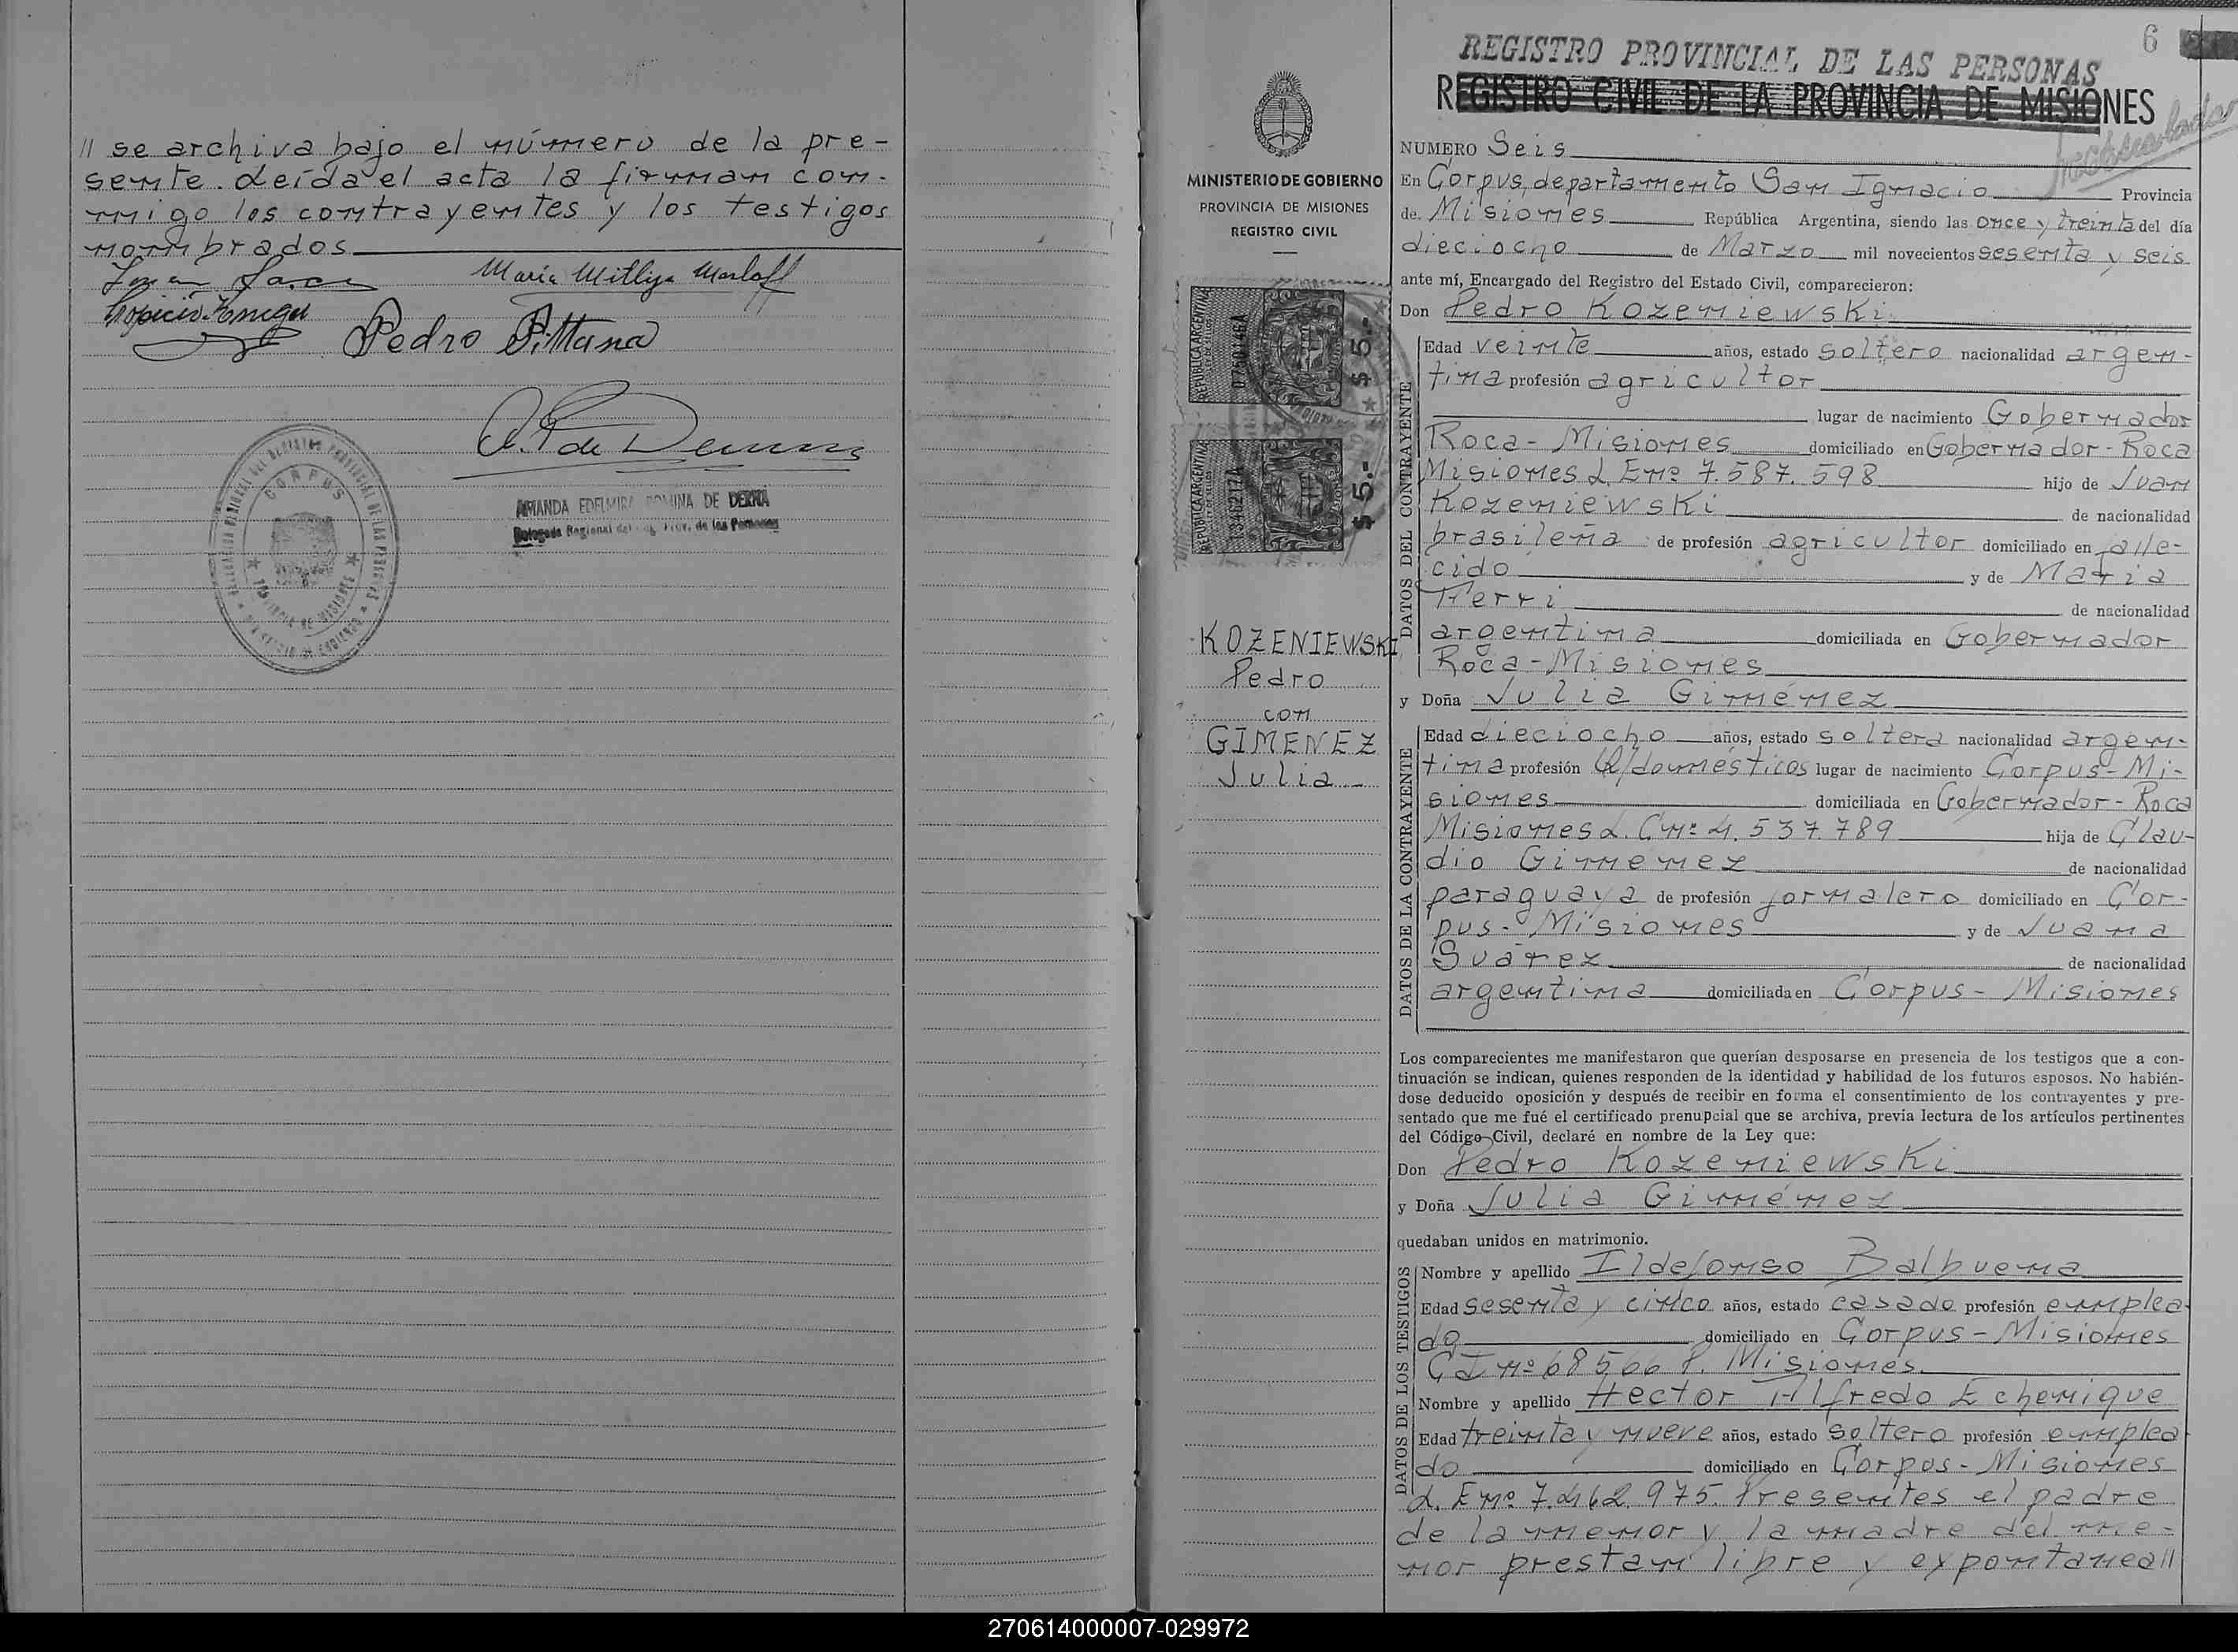 // se archiva bajo el número de la pre-
sente. Leída el acta la firman con-
migo los contrayentes y los testigos
nombrados
María Mitliga Marloff
Pedro Pittana
CORPUS
AMANDA EDELMIRA ROMINA DE DERNA
Delegada Regional del Reg. Prov. de las Personas
6
REGISTRO PROVINCIAL DE LAS PERSONAS
REGISTRO CIVIL DE LA PROVINCIA DE MISIONES
MINISTERIO DE GOBIERNO
PROVINCIA DE MISIONES
REGISTRO CIVIL
REPUBLICA ARGENTINA
$ 5.-
REPUBLICA ARGENTINA
$ 5.-
KOZENIEWSKI
Pedro
con
GIMENEZ
Julia
NUMERO Seis
En Corpus, departamento San Ignacio Provincia
de Misiones República Argentina, siendo las once y treinta del día
dieciocho de Marzo mil novecientos sesenta y seis
ante mí, Encargado del Registro del Estado Civil, comparecieron:
Don Pedro Kozeniewski
DATOS DEL CONTRAYENTE
Edad veinte años, estado soltero nacionalidad argen-
tina profesión agricultor
lugar de nacimiento Gobernador
Roca - Misiones domiciliado en Gobernador - Roca
Misiones L. E nº 7.587.598 hijo de Juan
Kozeniewski de nacionalidad
brasileña de profesión agricultor domiciliado en falle-
cido y de María
Ferri de nacionalidad
argentina domiciliada en Gobernador
Roca - Misiones
y Doña Julia Giménez
DATOS DE LA CONTRAYENTE
Edad dieciocho años, estado soltera nacionalidad argen-
tina profesión Q/domésticos lugar de nacimiento Corpus - Mi-
siones domiciliada en Gobernador - Roca
Misiones L. C nº 4.537.789 hija de Clau-
dio Gimenez de nacionalidad
paraguaya de profesión jornalero domiciliado en Cor-
pus - Misiones y de Juana
Suárez de nacionalidad
argentina domiciliada en Corpus - Misiones
Los comparecientes me manifestaron que querían desposarse en presencia de los testigos que a con-
tinuación se indican, quienes responden de la identidad y habilidad de los futuros esposos. No habién-
dose deducido oposición y después de recibir en forma el consentimiento de los contrayentes y pre-
sentado que me fué el certificado prenupcial que se archiva, previa lectura de los artículos pertinentes
del Código Civil, declaré en nombre de la Ley que:
Don Pedro Kozeniewski
y Doña Julia Giménez
quedaban unidos en matrimonio.
DATOS DE LOS TESTIGOS
Nombre y apellido Ildefonso Balbuena
Edad sesenta y cinco años, estado casado profesión emplea
do domiciliado en Corpus - Misiones
C I nº 68566 P. Misiones.
Nombre y apellido Hector Alfredo Echenique
Edad treinta y nueve años, estado soltero profesión emplea
do domiciliado en Corpus - Misiones
L. E nº 7.462.975. Presentes el padre
de la menor y la madre del me-
nor prestan libre y expontanea//
270614000007-029972